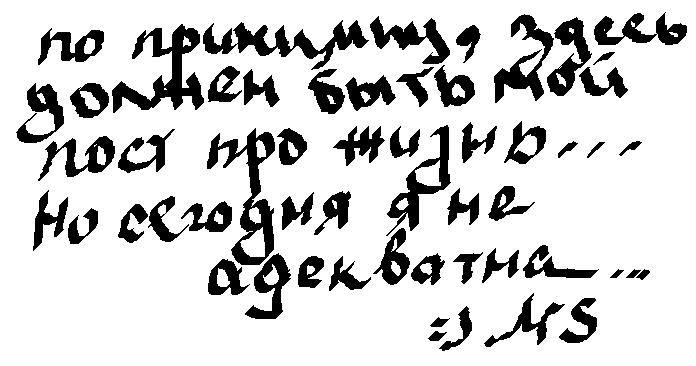 по принципу, здесь
должен быть мой
пост про жизнь...
Но сегодня я не
адекватна...
=) MS